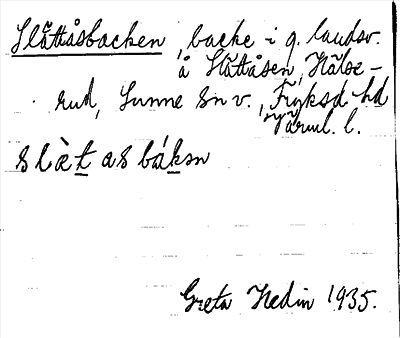 Slåttåsbacken, backe i g. landsv.
å Slåttåsen, Hålse-
rud, Sunne sn v., Fryksd. hd
Värml. l.
slæ̀t as bákən
Greta Hedin 1935.